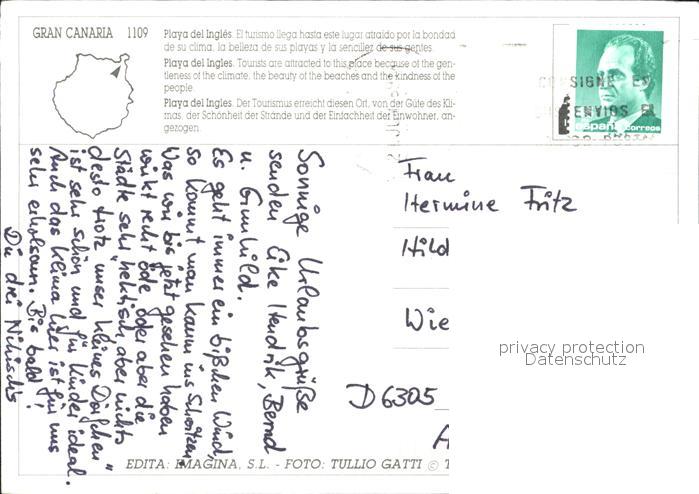 GRAN CANARIA 1109
Playa del Inglés. El turismo llega hasta este lugar atraído por la bondad
de su clima, la belleza de sus playas y la sencillez de sus gentes.
Playa del Ingles. Tourists are attracted to this place because of the gen-
tleness of the climate, the beauty of the beaches and the kindness of the
people.
Playa del Ingles. Der Tourismus erreicht diesen Ort, von der Güte des Kli-
mas, der Schönheit der Strände und der Einfachheit der Einwohner, an-
gezogen.
CONSIGNE EN
ENVIOS EL
españa correos
Sonnige Urlaubsgrüße
senden Eike Hendrik, Bernd
u. Gunhild.
Es geht immer ein bißchen Wind,
so kommt man kaum ins Schwitzen.
Was wir bis jetzt gesehen haben
wirkt recht öde oder aber die
Städte sehr hektisch, aber nichts
desto trotz unser kleines "Dörfchen"
ist sehr schön und für Kinder ideal.
Auch das Klima hier ist für uns
sehr erholsam. Bis bald!
Die drei
Frau
Hermine Fritz
Hild
Wie
D 6305
A
privacy protection
Datenschutz
EDITA: IMAGINA, S.L. - FOTO: TULLIO GATTI © T